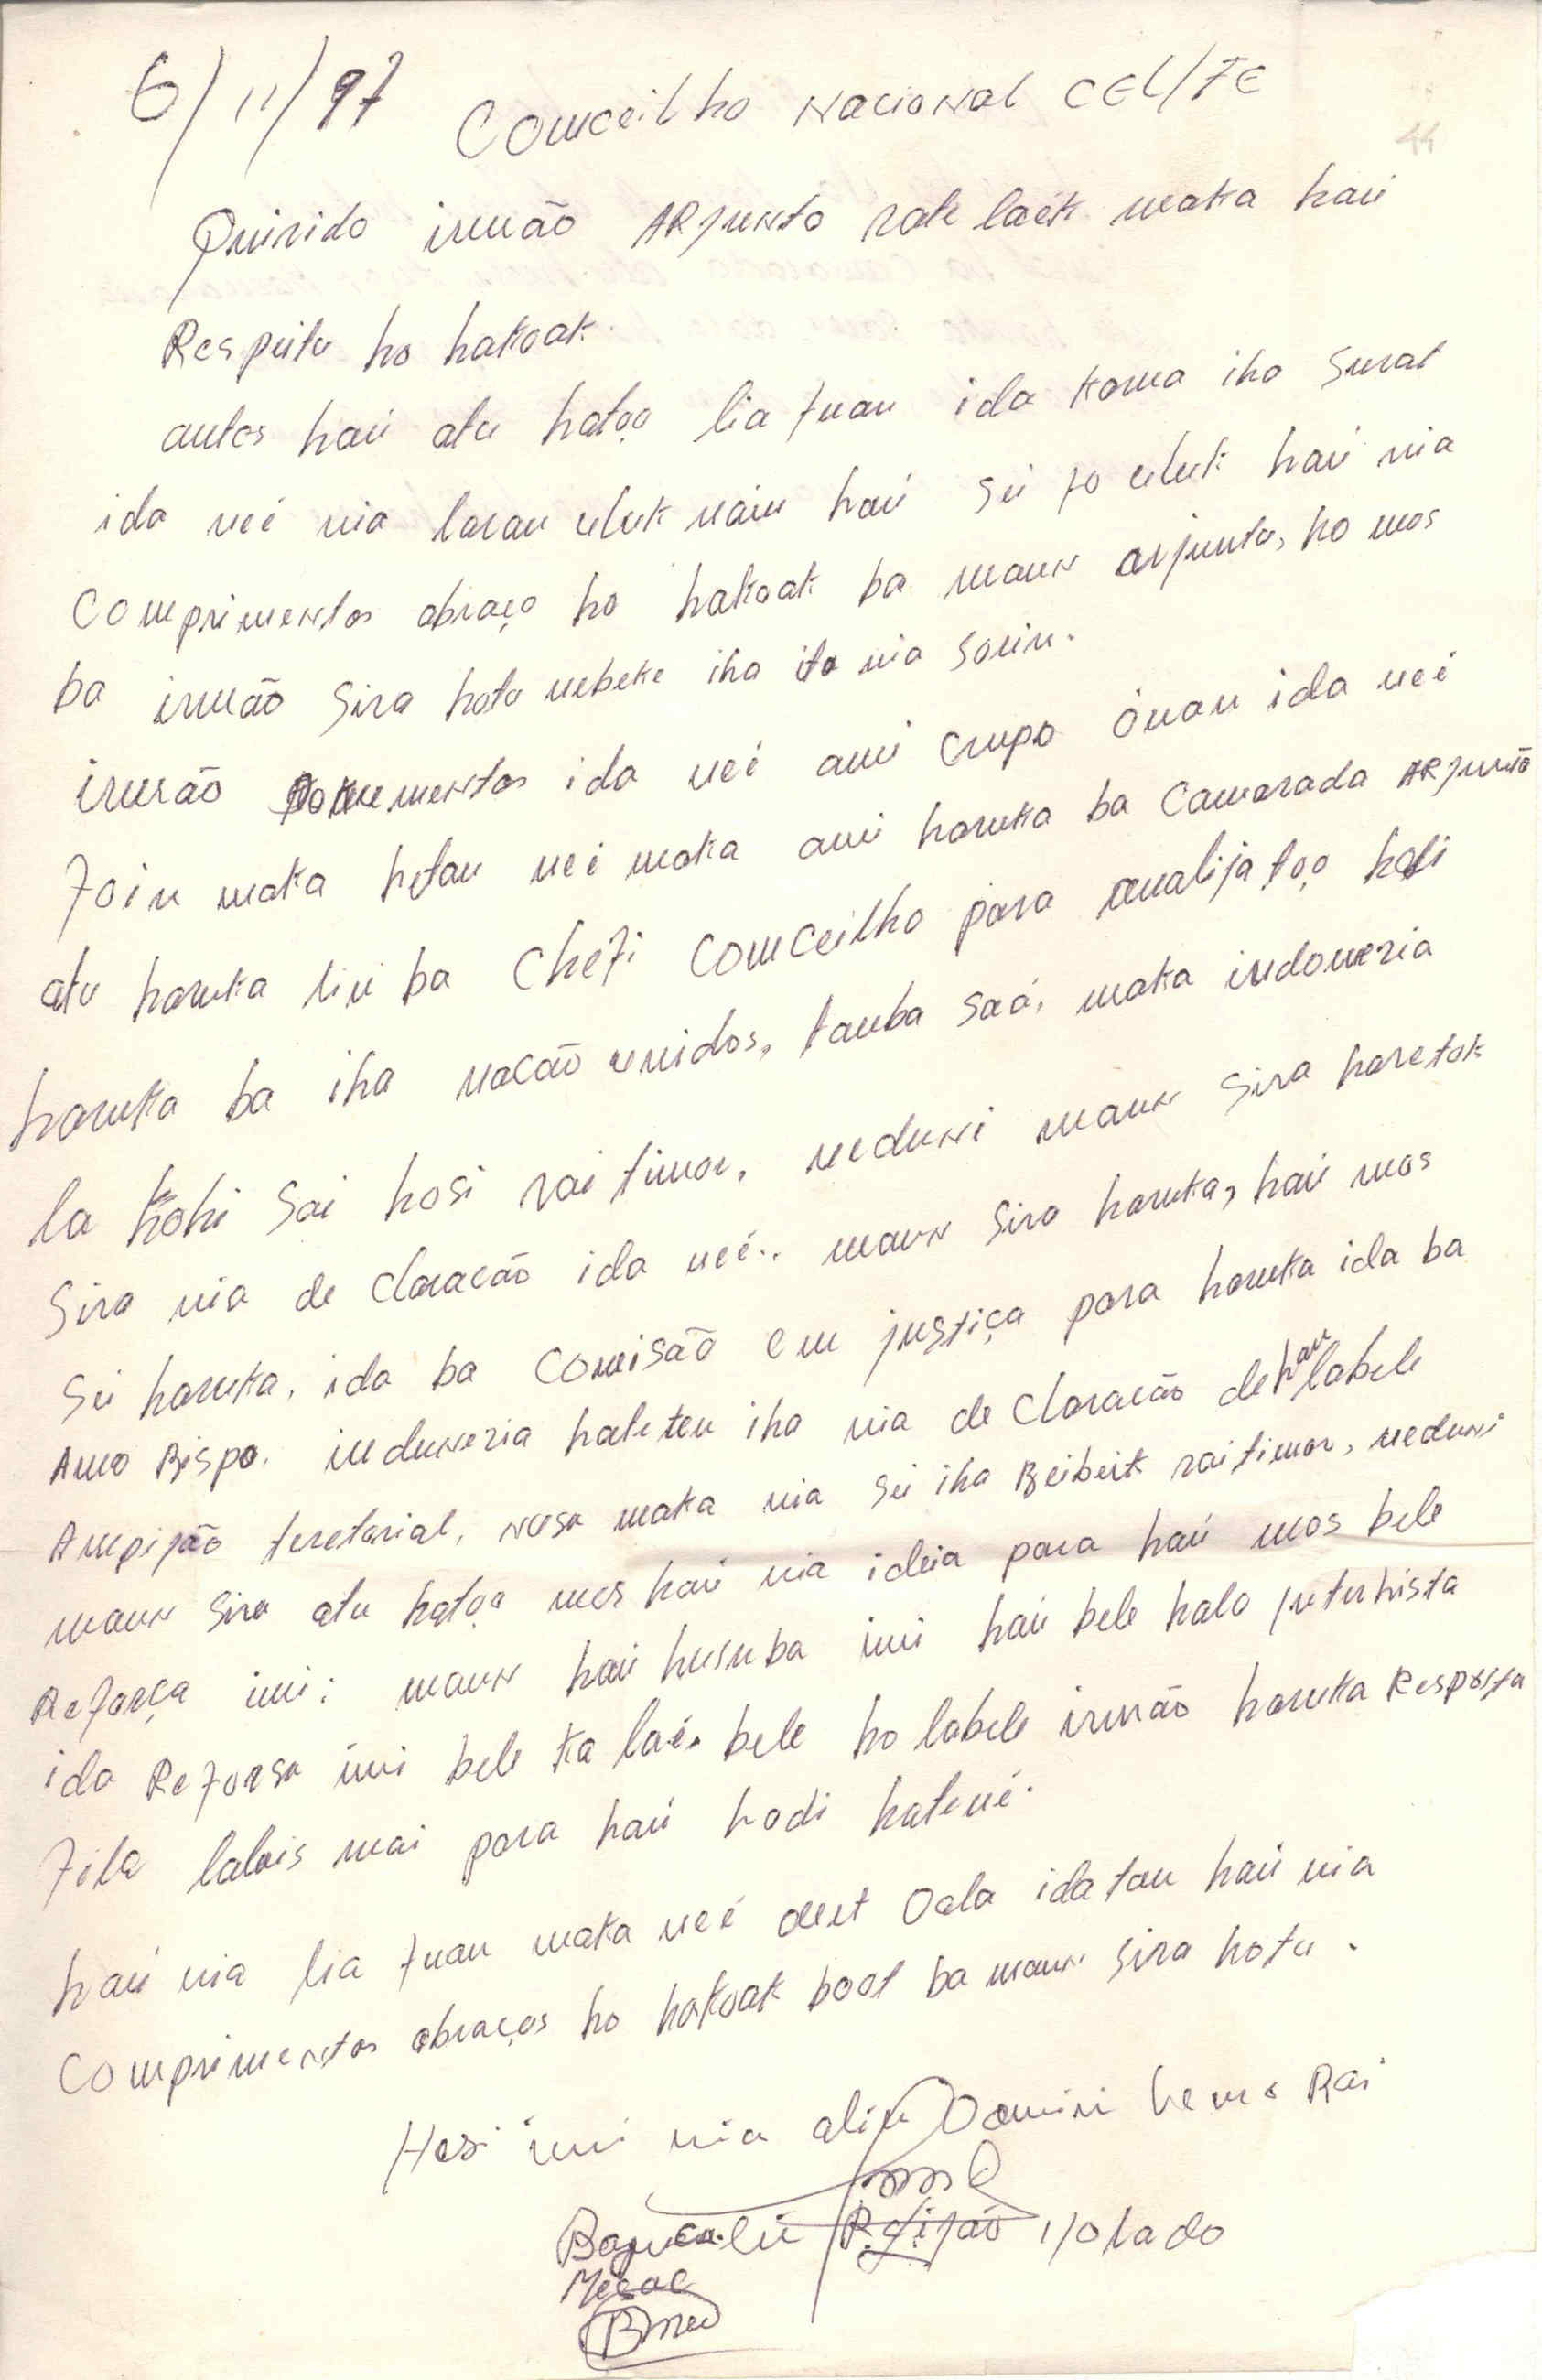 6/11/97 Comceilho Nacional CEL/FE
44
Quirido irmão ARjunto rate laék maka haú
Respeitu ho hakoak.
antes haú atu hatoo lia fuan ida koma iha surat
ida neé nia laran uluk náiu haú sei fo uluk haú nia
Comprimentos abraço ho hakoak ba maun arjunto, ho mos
ba irmão sira hotu nebeke iha ita nia sorin.
irmão Dokumentos ida neé ami Crupo ónan ida neé
foin maka hetan neé maka ami haruka ba Camarada ARjunto
atu haruka liu ba Chefi Comceilho para analija too hodi
haruka ba iha nacão unidos, tanba saá, maka indoneria
la kohi sai hosi rai timor, neduni maun sira haretok
sira nia de claracão ida neé.. maun sira haruka, haú mos
sei haruka, ida ba Comisão em justiça para haruka ida ba
Amo Bispo. induneria hateten iha nia de claracão dehan labele
Ampijão teretorial, nusa maka nia sei iha Beibeik rai timor, neduni
maun sira atu hatoo mes haú nia ideia para haú mos bele
Reforça imi: maun haú husu ba imi haú bele halo futurhista
ida Reforsa imi bele ka laé. bele ho labele irmão haruka Resposta
fila lalais mai para haú hodi hatené.
haú nia lia fuan maka neé deit Oala ida tan haú nia
Comprimentos abraços ho hakoak boot ba maun sira hotu.
Hosi imi nia alin Domini Lemo Rai
Rejião ijolado